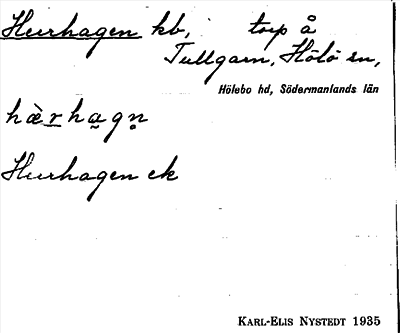 Hurhagen kb, torp å
Tullgarn, Hölö sn,
Hölebo hd, Södermanlands län
hæ̀rhagn̥
Hurhagen ek
KARL-ELIS NYSTEDT 1935